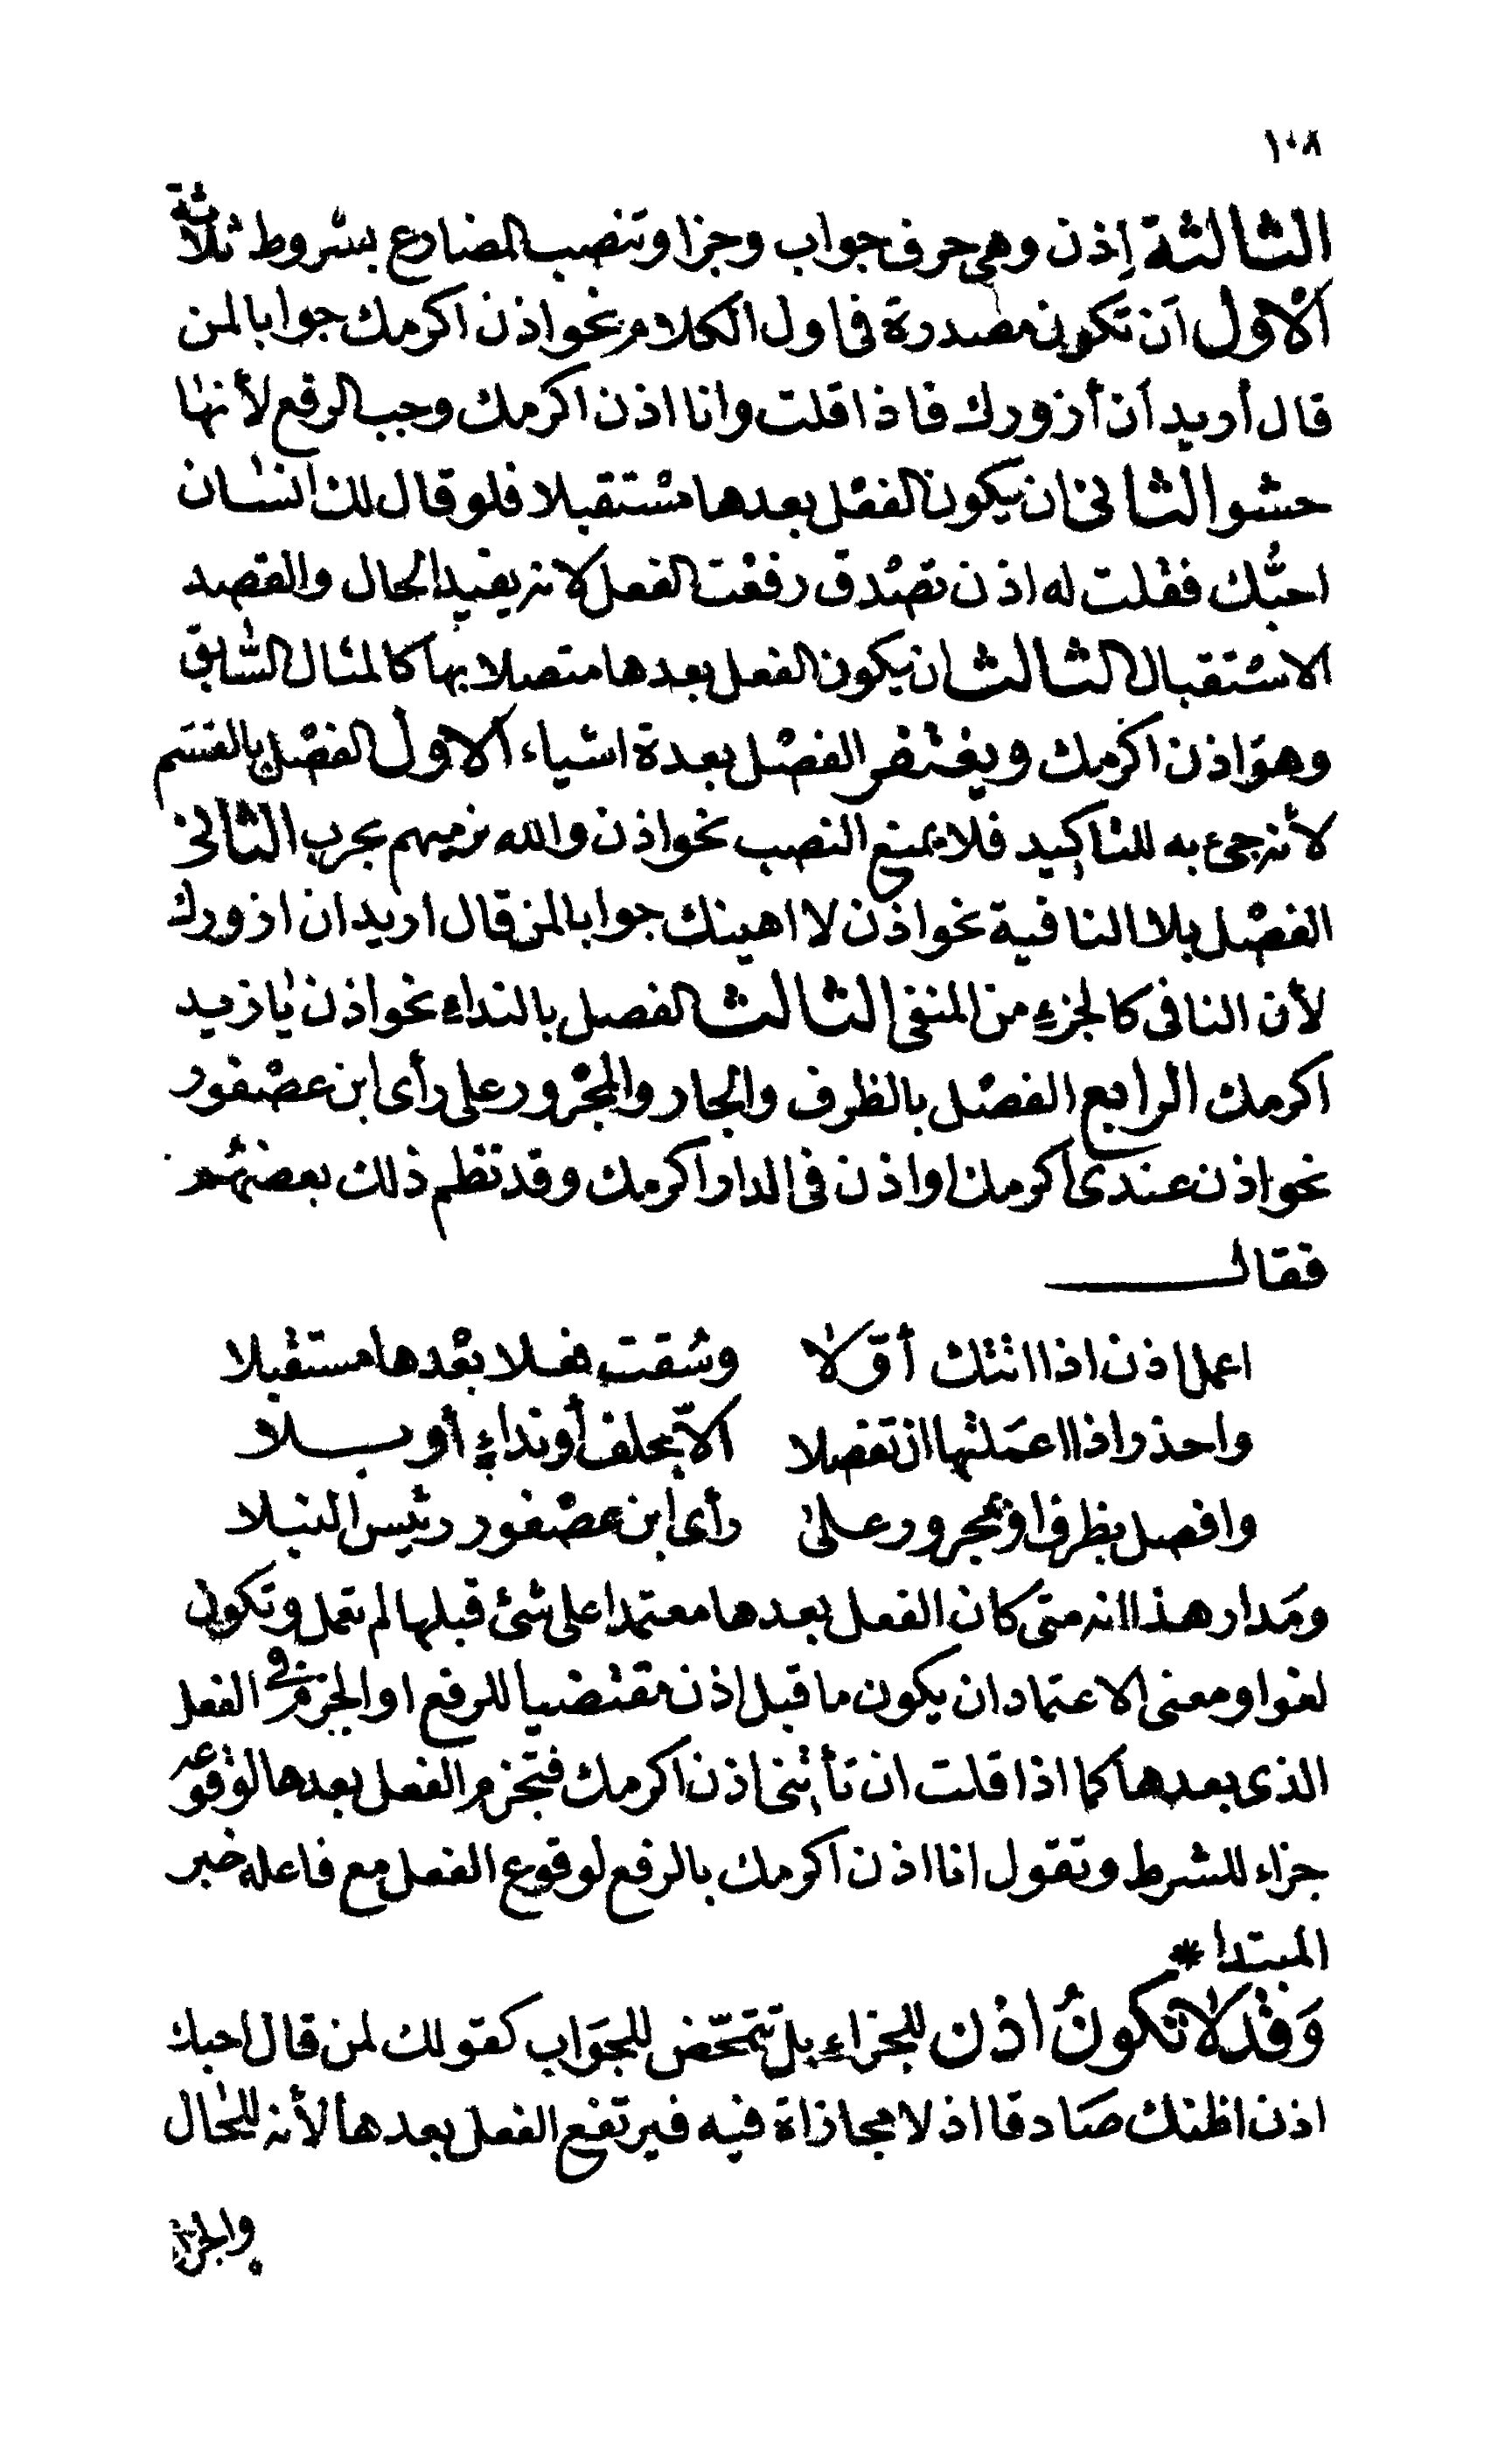 ١٠٨
الثالثة إذن وهي حرف جواب وجزا وتنصب المضارع بشروط ثلاثة
الاول ان تكون مصدرة في اول الكلام نحو اذن اكرمك جوابا لمن
قال أريد أن أزورك فاذا قلت وانا اذن اكرمك وجب الرفع لأنها
حشو الثاني ان يكون الفعل بعدها مستقبلا فلو قال لك انسان
احبّك فقلت له اذن تصدق رفعت الفعل لانه يفيد الحال والقصد
الاستقبال الثالث ان يكون الفعل بعدها متصلا بها كالمثال السّابق
وهو اذن اكرمك ويغتفر الفصل بعدة اشياء الاول الفصل بالقسم
لأنه جئ به للتاكيد فلا يمنع النصب نحو اذن والله نرميهم بحرب الثاني
الفصل بلا النافية نحو اذن لا اهينك جوابا لمن قال اريد ان ازورك
لأن النافى كالجزء من المنفي الثالث الفصل بالنداء نحو اذن يا زيد
اكرمك الرابع الفصل بالظرف والجار والمجرور على رأى ابن عصفور
نحو اذن عندى اكرمك او اذن في الدار اكرمك وقد نظم ذلك بعضهم
فقال
اعمل اذن اذا اتتك أوّلا وسقت فعلا بعدها مستقبلا
واحذر اذا اعملتها ان تفصلا الاّ بحلف أو نداء أو بلا
وافصل بظرف او بمجرور على رأى ابن عصفور رئيس النبلا
ومدار هذا انه متى كان الفعل بعدها معتمدا على شئ قبلها لم تعمل وتكون
لغوا ومعنى الاعتماد ان يكون ما قبل اذن مقتضيا للرفع او الجزم في الفعل
الذى بعدها كما اذا قلت ان تأتنى اذن اكرمك فتجزم الفعل بعدها لوقوعه
جزاء للشرط وتقول انا اذن اكرمك بالرفع لوقوع الفعل مع فاعله خبر
المبتدا *
وَقد لا تكونُ اذن للجزاء بل تتمحّض للجواب كقولك لمن قال احبك
اذن اظنك صادقا اذ لا مجازاة فيه فيرتفع الفعل بعدها لأنه للحال